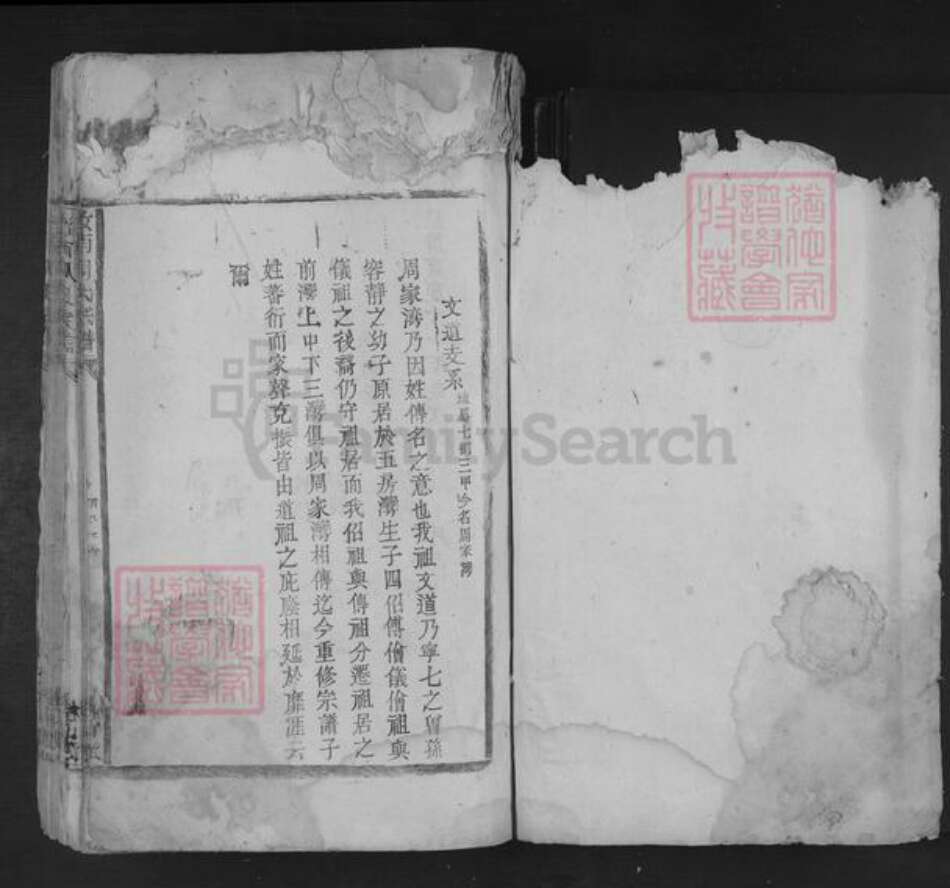 文道支系 七都三甲今名周家灣
周家灣乃因姓傳名之意也我祖文道乃寧七之曾孫
容靜之幼子原居於五房灣生子四佋傳儈儀儈祖與
儀祖之後裔仍守祖居而我佋祖與傳祖分遷祖居之
前灣上中下三灣俱以周家灣相傳迄今重修宗譜子
姓蕃衍而家聲克振皆由道祖之庇廕相延於靡涯云
爾
周氏宗譜
FamilySearch
猶他家
譜學會
收藏
猶他家
譜學會
收藏